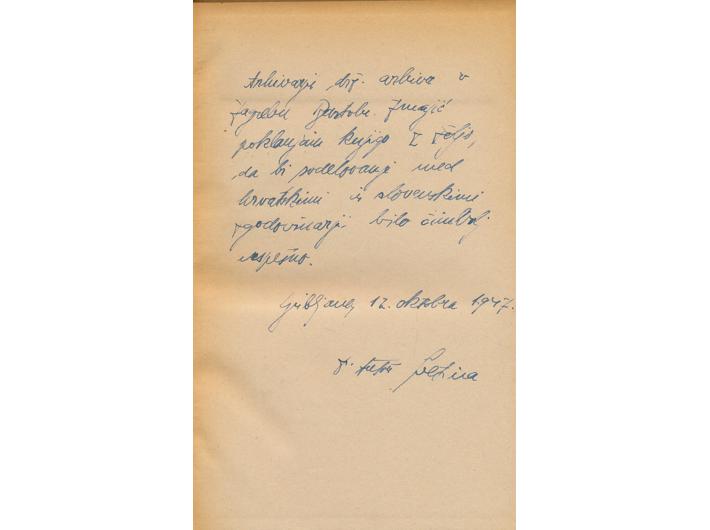 Arhivarju drž. arhiva v
Zagrebu Bartolu Zmajić
poklanjam knjigo z željo,
da bi sodelovanje med
hrvatskimi in slovenskimi
zgodovinarji bilo čimbolj
uspešno.
Ljubljana, 12. oktobra 1947.
Svetina